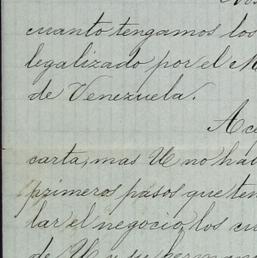 cuanto tengamos los
legalizado por el M
de Venezuela.
Ac
carta, mas U no hab
primeros pasos que ten
lar el negocio, los cu
de U y su herman